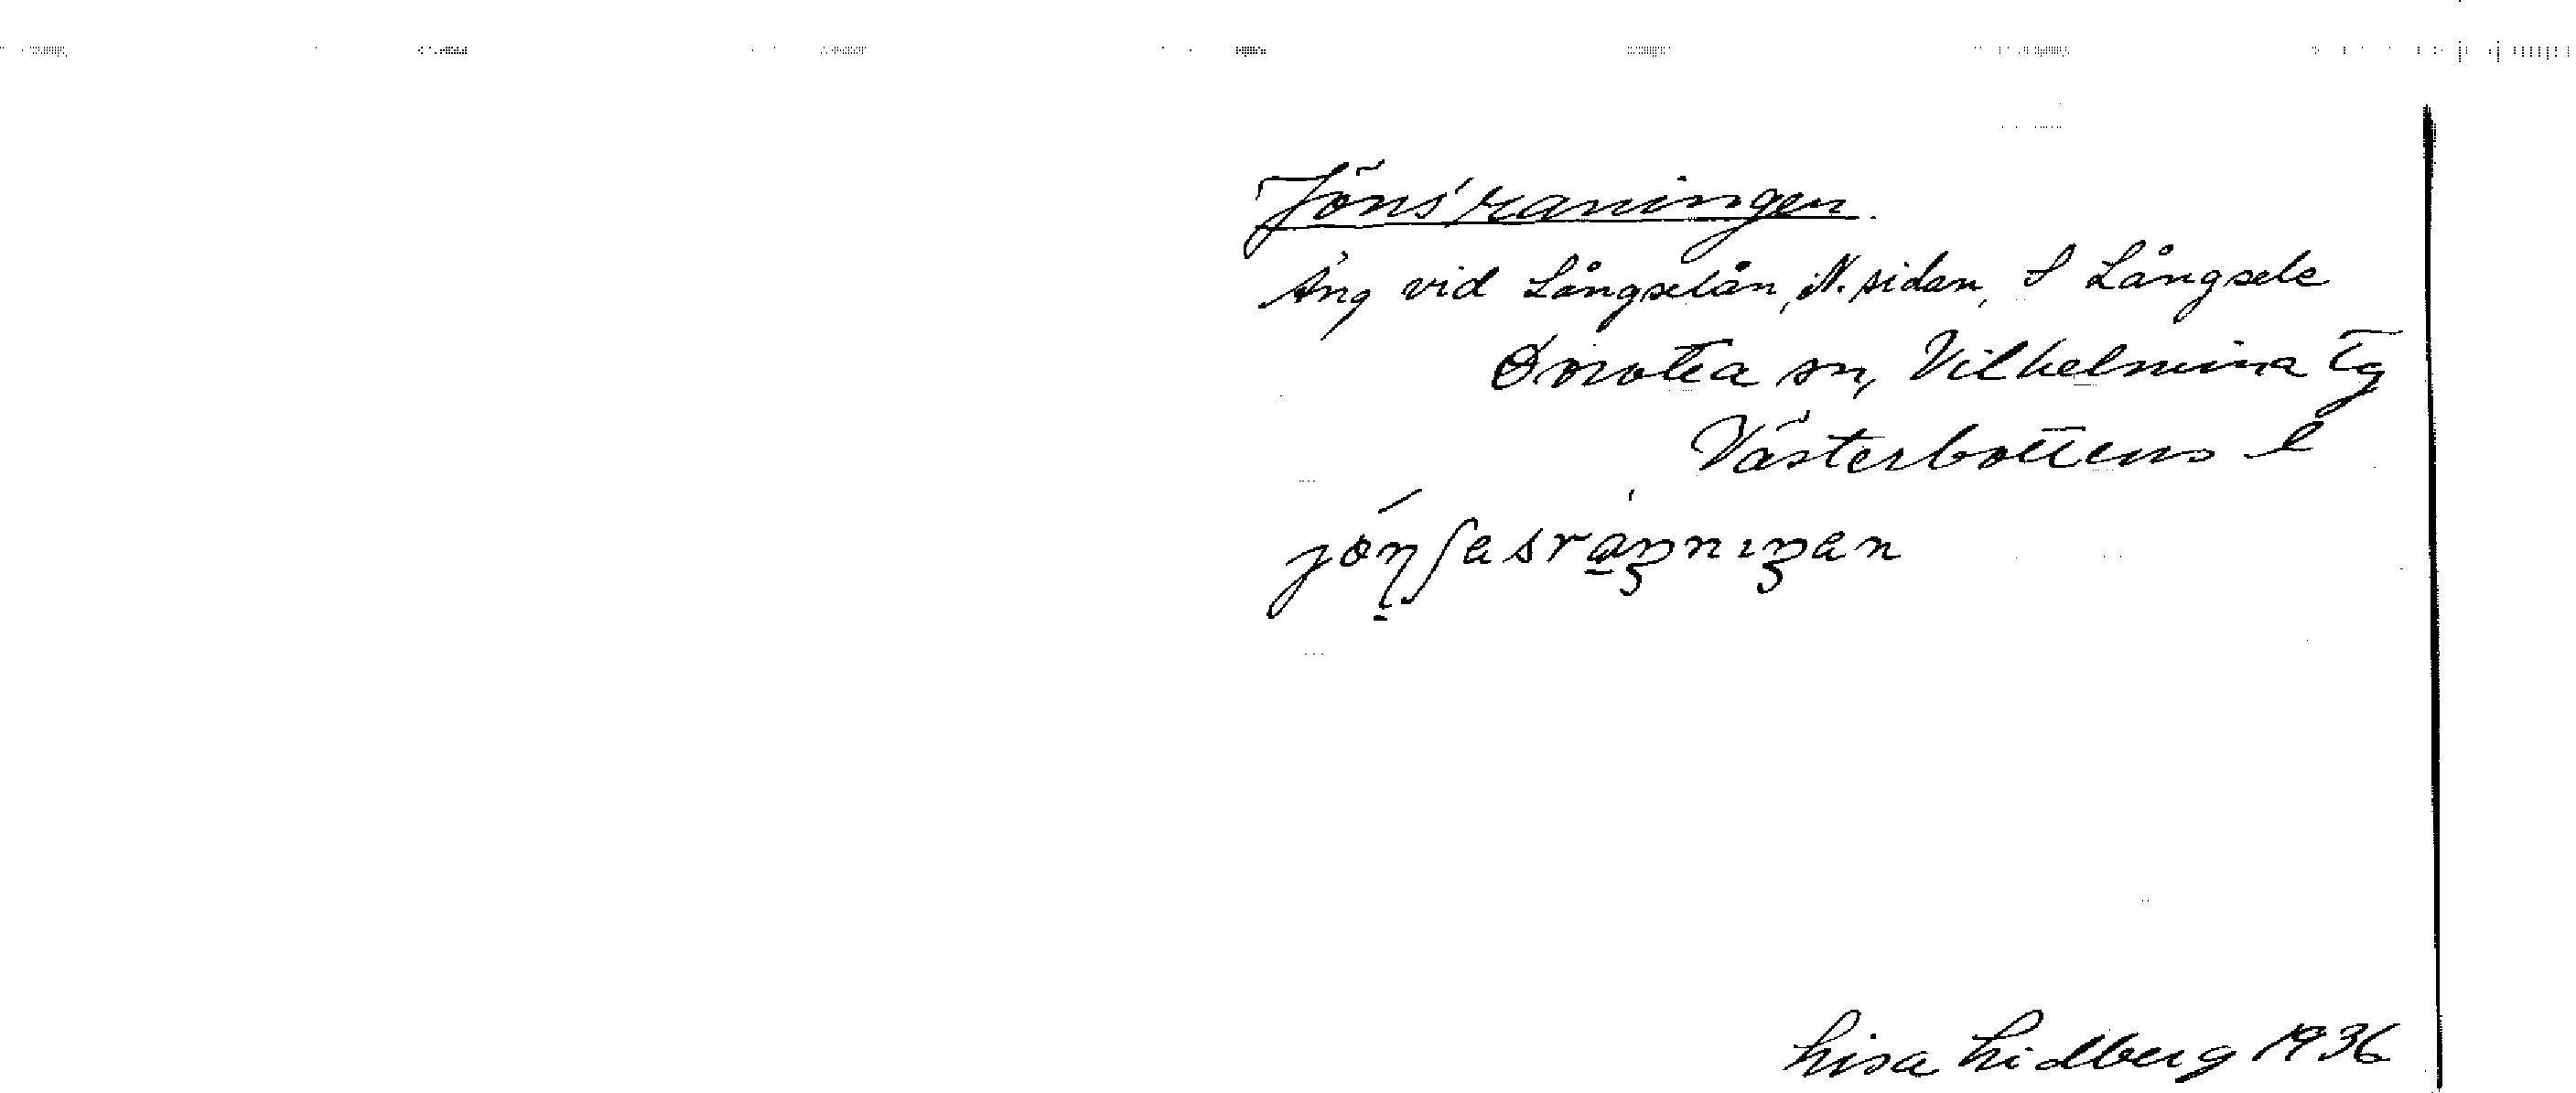 Jöns'raningen.
Äng vid Långselån, N. sidan, S Långsele
Dorotea sn, Vilhelmina tg
Västerbottens l
Lisa Lidberg 1936